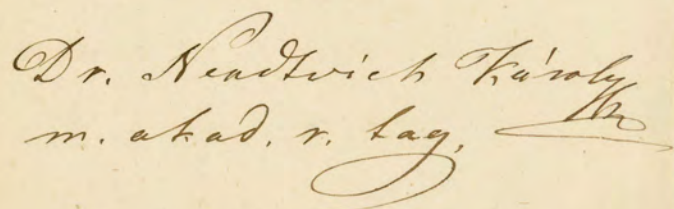 Dr. Nendtvich Károly
m. akad. r. tag.